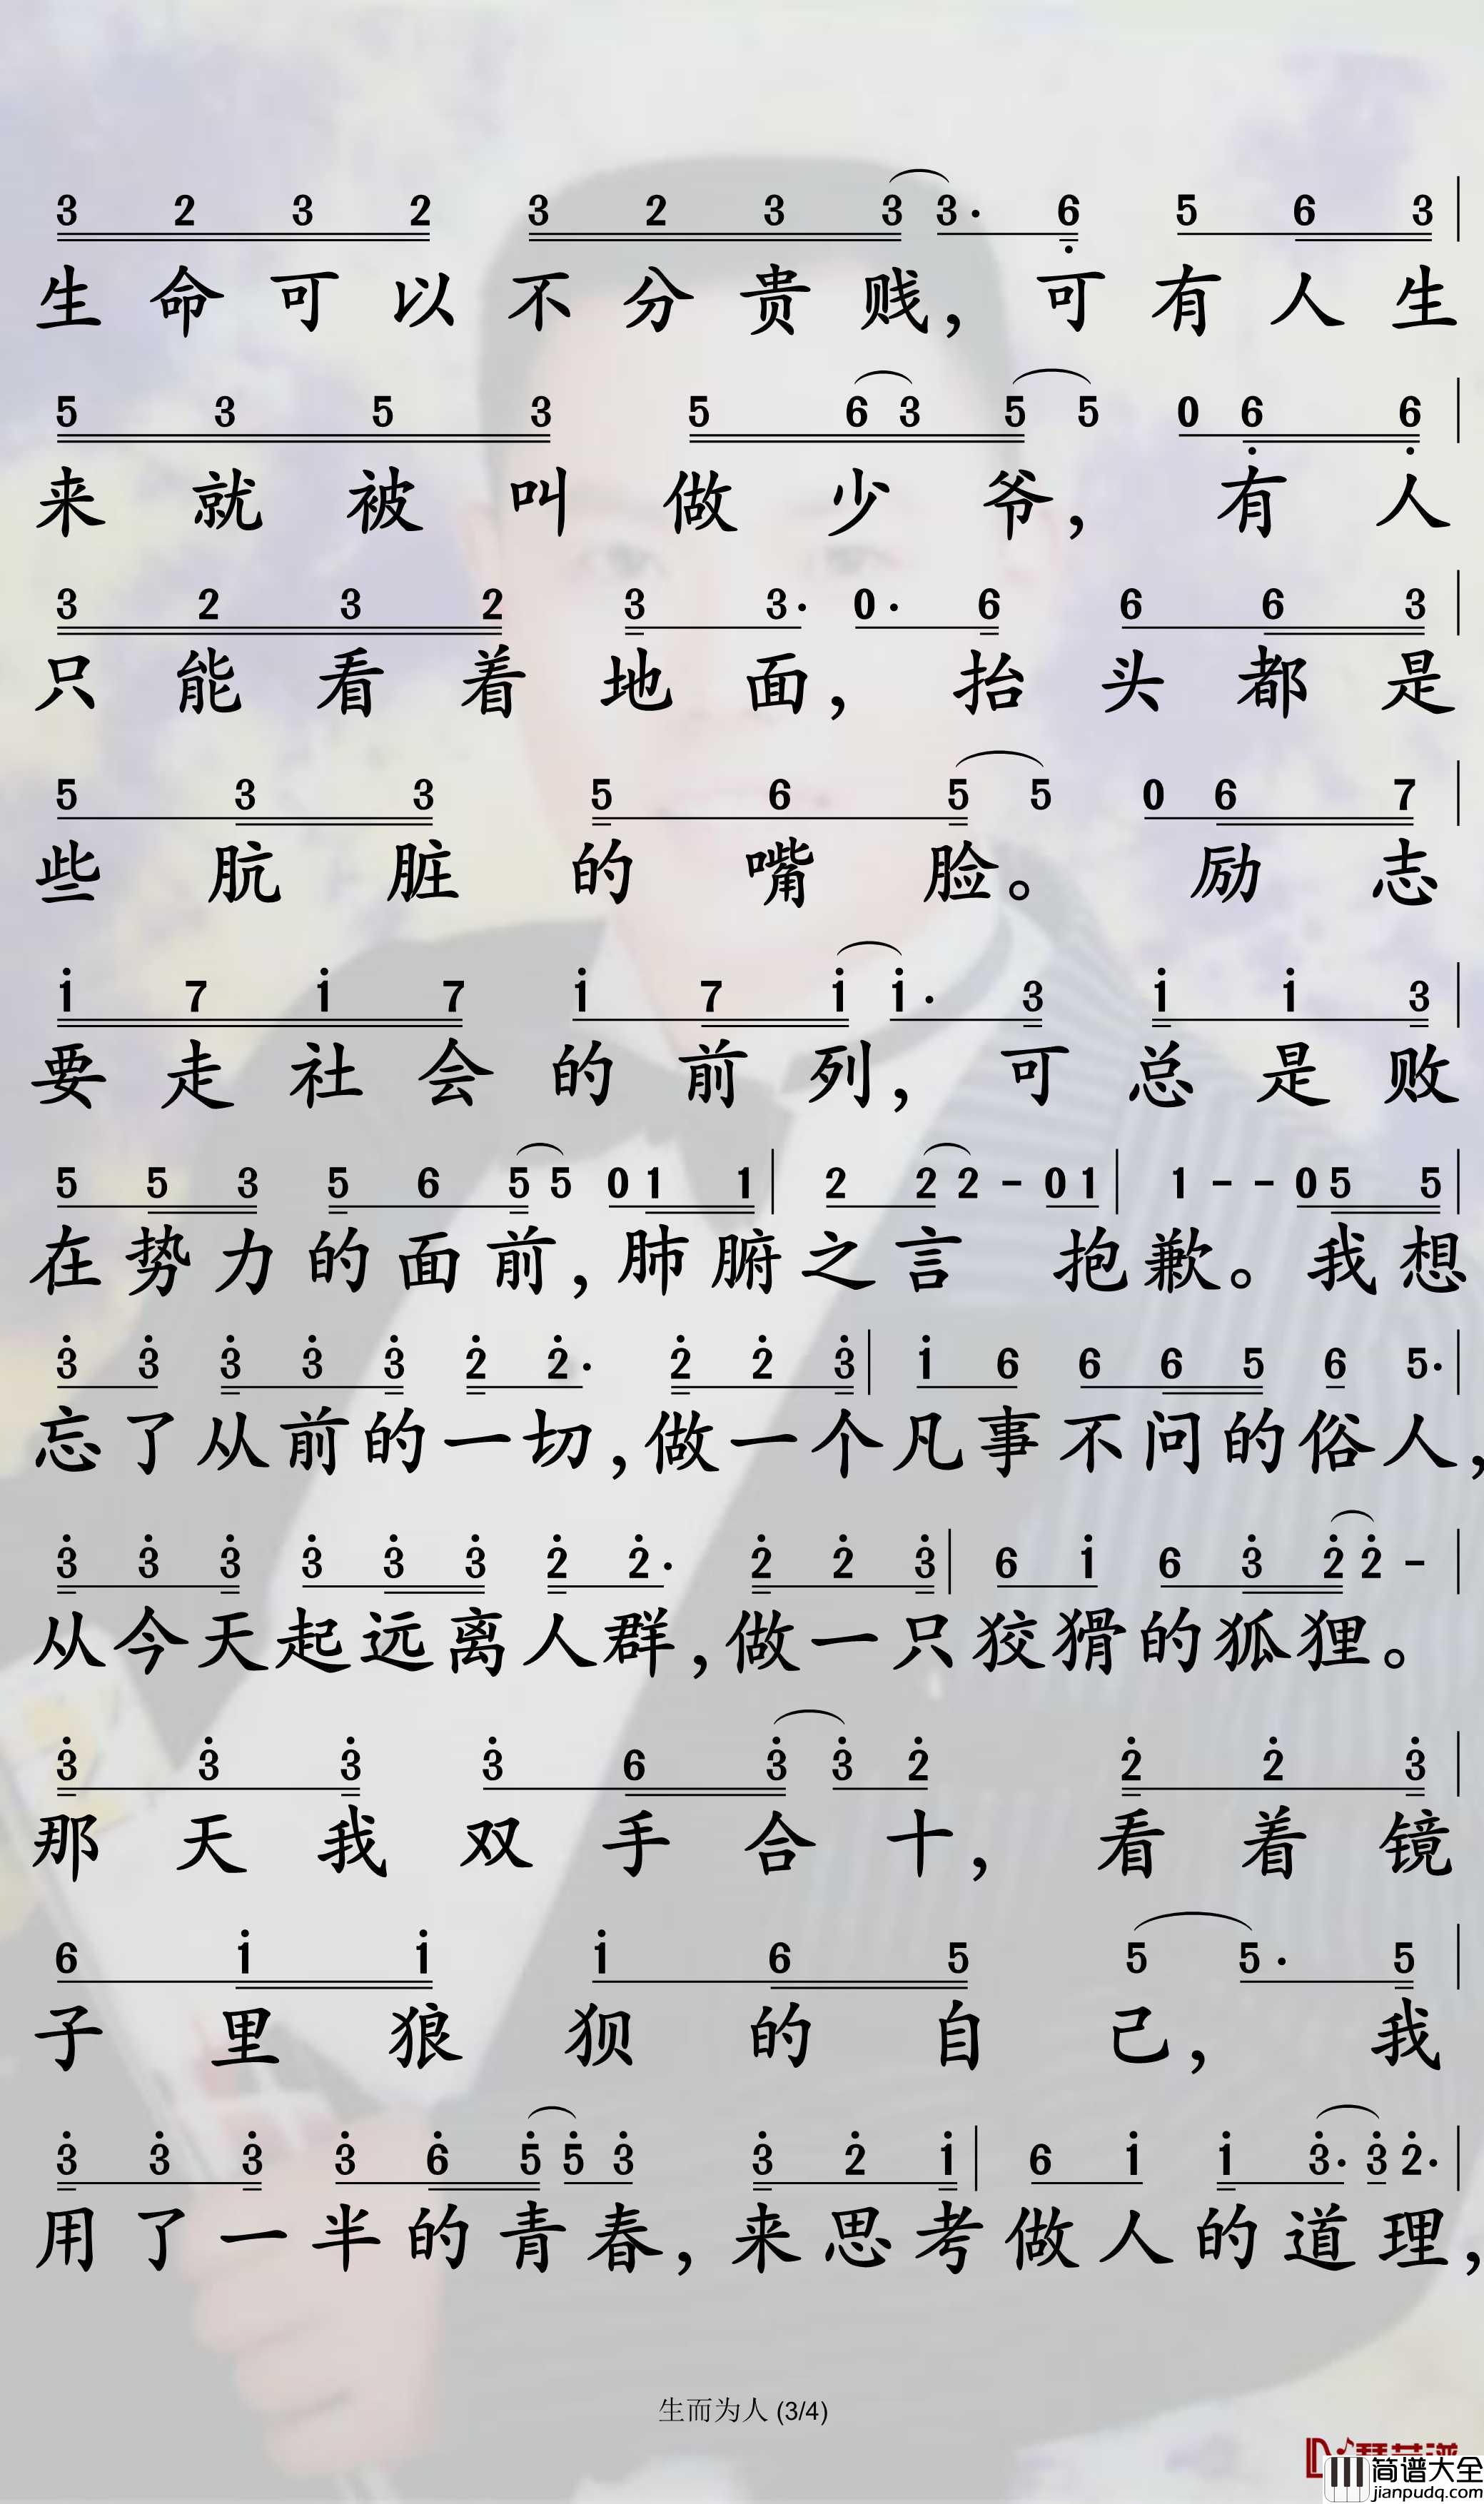 3 2 3 2 3 2 3 3 3· 6 5 6 3
生命可以不分贵贱，可有人生
5 3 5 3 5 6 3 5 5 0 6 6
来就被叫做少爷，有人
3 2 3 2 3 3· 0· 6 6 6 3
只能看着地面，抬头都是
5 3 3 5 6 5 5 0 6 7
些肮脏的嘴脸。励志
1 7 1 7 1 7 1 1· 3 1 1 3
要走社会的前列，可总是败
5 5 3 5 6 5 5 0 1 1 2 2 2 - 0 1 1 - - 0 5 5
在势力的面前，肺腑之言 抱歉。我想
3 3 3 3 3 2 2· 2 2 3 1 6 6 6 5 6 5·
忘了从前的一切，做一个凡事不问的俗人，
3 3 3 3 3 3 2 2· 2 2 3 6 1 6 3 2 2 -
从今天起远离人群，做一只狡猾的狐狸。
3 3 3 3 6 3 3 2 2 2 3
那天我双手合十，看着镜
6 1 1 1 6 5 5 5· 5
子里狼狈的自己，我
3 3 3 3 6 5 5 3 3 2 1 6 1 1 3· 3 2·
用了一半的青春，来思考做人的道理，
生而为人 (3/4)
简谱大全
jianpudq.com